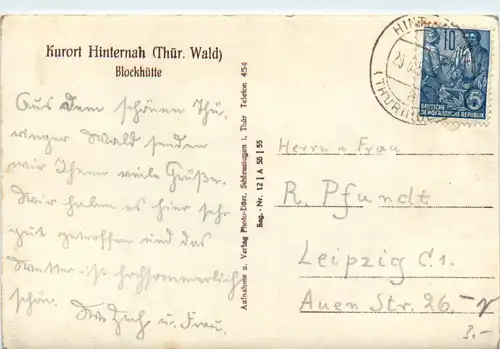 Kurort Hinternah (Thür. Wald)
Blockhütte
Aus dem schönen Thü-
ringer Wald senden
wir Ihnen viele Grüße.
Wir haben es hier sehr
gut getroffen und das
Wetter ist hochsommerlich
schön.
u. Frau.
Aufnahme u. Verlag Photo-Dörr, Schleusingen i. Thür Telefon 454
Reg.-Nr. 12 | A 55 | 55
10
DEUTSCHE
DEMOKRATISCHE REPUBLIK
Herrn u Frau
R. Pfundt
Leipzig C 1.
Auen Str. 26.
3.-